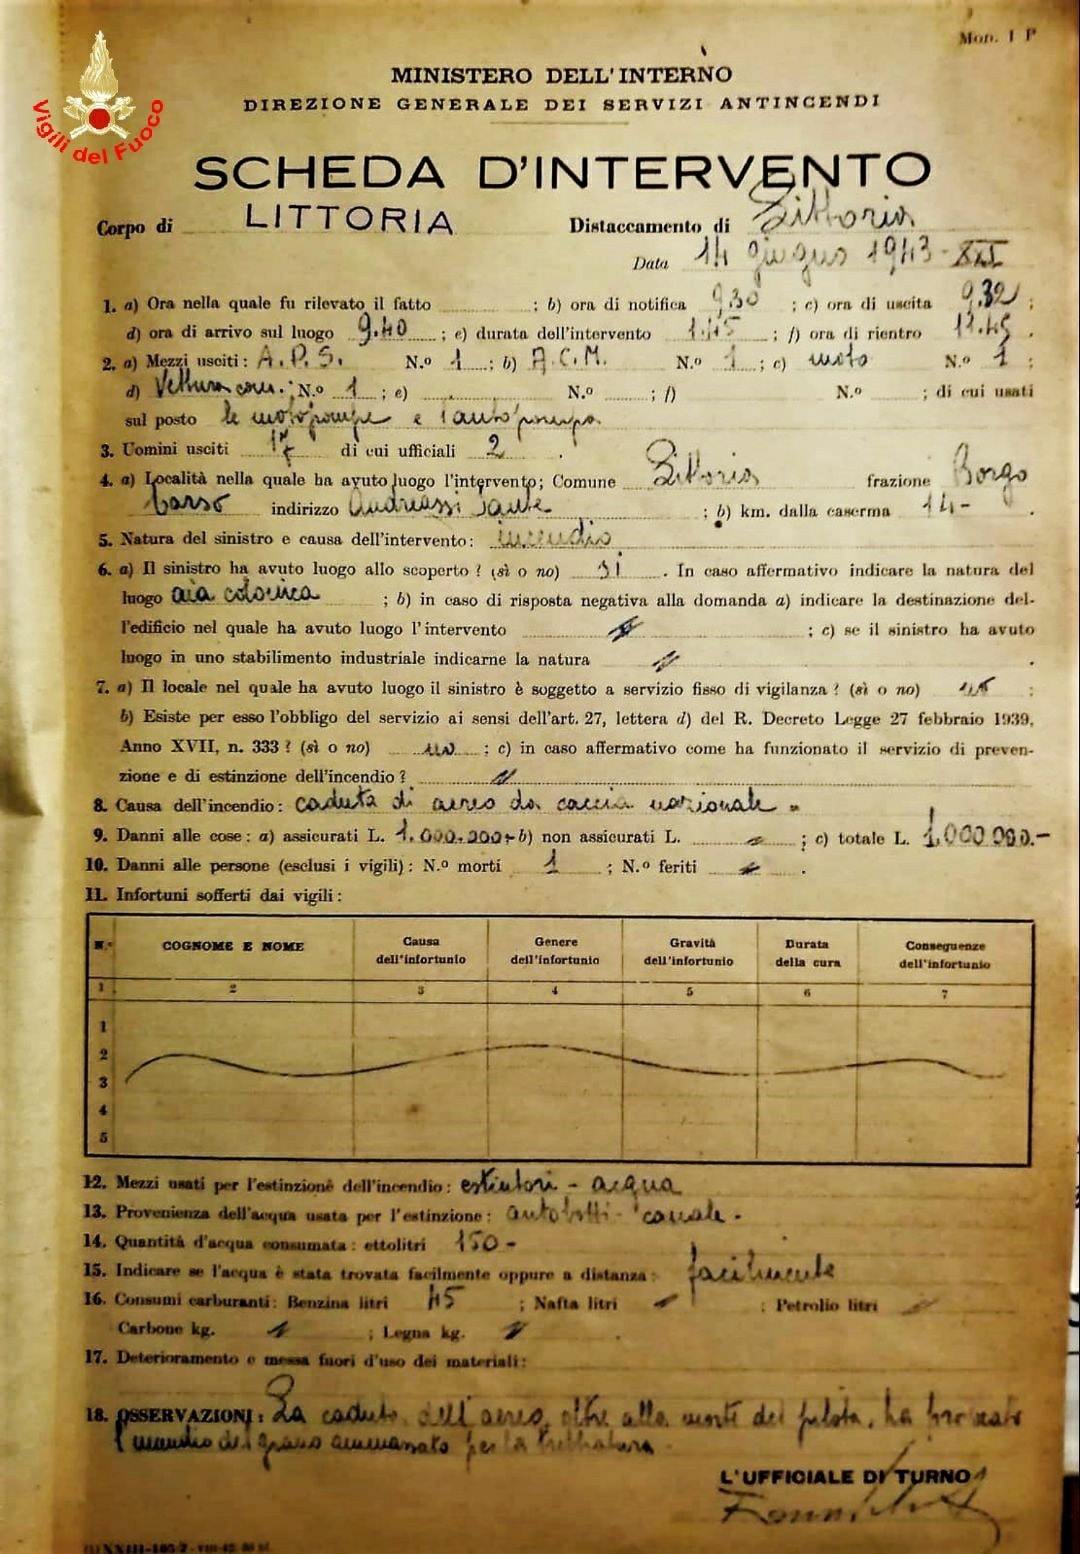 Mod. 1 P
Vigili del Fuoco
MINISTERO DELL'INTERNO
DIREZIONE GENERALE DEI SERVIZI ANTINCENDI
SCHEDA D'INTERVENTO
Corpo di LITTORIA Distaccamento di Littoria
Data 14 giugno 1943-XXI
1. a) Ora nella quale fu rilevato il fatto ; b) ora di notifica 9,30 ; c) ora di uscita 9,32 ;
d) ora di arrivo sul luogo 9.40 ; e) durata dell'intervento 1.45 ; f) ora di rientro 11.45 .
2. a) Mezzi usciti: A.P.S. N.º 1 ; b) A.C.M. N.º 1 ; c) moto N.º 1 ;
d) Vettura com. ; N.º 1 ; e) N.º ; f) N.º ; di cui usati
sul posto le motopompe e l'autopompa
3. Uomini usciti 17 di cui ufficiali 2 .
4. a) Località nella quale ha avuto luogo l'intervento; Comune Littoria frazione Borgo
Carso indirizzo Andreassi Sante ; b) km. dalla caserma 14- .
5. Natura del sinistro e causa dell'intervento: incendio
6. a) Il sinistro ha avuto luogo allo scoperto? (sì o no) si . In caso affermativo indicare la natura del
luogo aia colonica ; b) in caso di risposta negativa alla domanda a) indicare la destinazione del-
l'edificio nel quale ha avuto luogo l'intervento ; c) se il sinistro ha avuto
luogo in uno stabilimento industriale indicarne la natura .
7. a) Il locale nel quale ha avuto luogo il sinistro è soggetto a servizio fisso di vigilanza? (sì o no) no ;
b) Esiste per esso l'obbligo del servizio ai sensi dell'art. 27, lettera d) del R. Decreto Legge 27 febbraio 1939,
Anno XVII, n. 333? (sì o no) no ; c) in caso affermativo come ha funzionato il servizio di preven-
zione e di estinzione dell'incendio?
8. Causa dell'incendio: caduta di aereo da caccia nazionale
9. Danni alle cose: a) assicurati L. 1.000.000- b) non assicurati L. ; c) totale L. 1.000.000.-
10. Danni alle persone (esclusi i vigili): N.º morti 1 ; N.º feriti .
11. Infortuni sofferti dai vigili:
N.º COGNOME E NOME Causa dell'infortunio Genere dell'infortunio Gravità dell'infortunio Durata della cura Conseguenze dell'infortunio
1 2 3 4 5 6 7
1
2
3
4
5
12. Mezzi usati per l'estinzione dell'incendio: estintori - acqua
13. Provenienza dell'acqua usata per l'estinzione: autobotti - canale -
14. Quantità d'acqua consumata: ettolitri 150-
15. Indicare se l'acqua è stata trovata facilmente oppure a distanza: facilmente
16. Consumi carburanti: Benzina litri 45 ; Nafta litri ; Petrolio litri
Carbone kg. ; Legna kg. .
17. Deterioramento e messa fuori d'uso dei materiali:
18. OSSERVAZIONI: La caduta dell'aereo, oltre alla morte del pilota, ha provocato
l'incendio del grano ammassato per la trebbiatura.
L'UFFICIALE DI TURNO